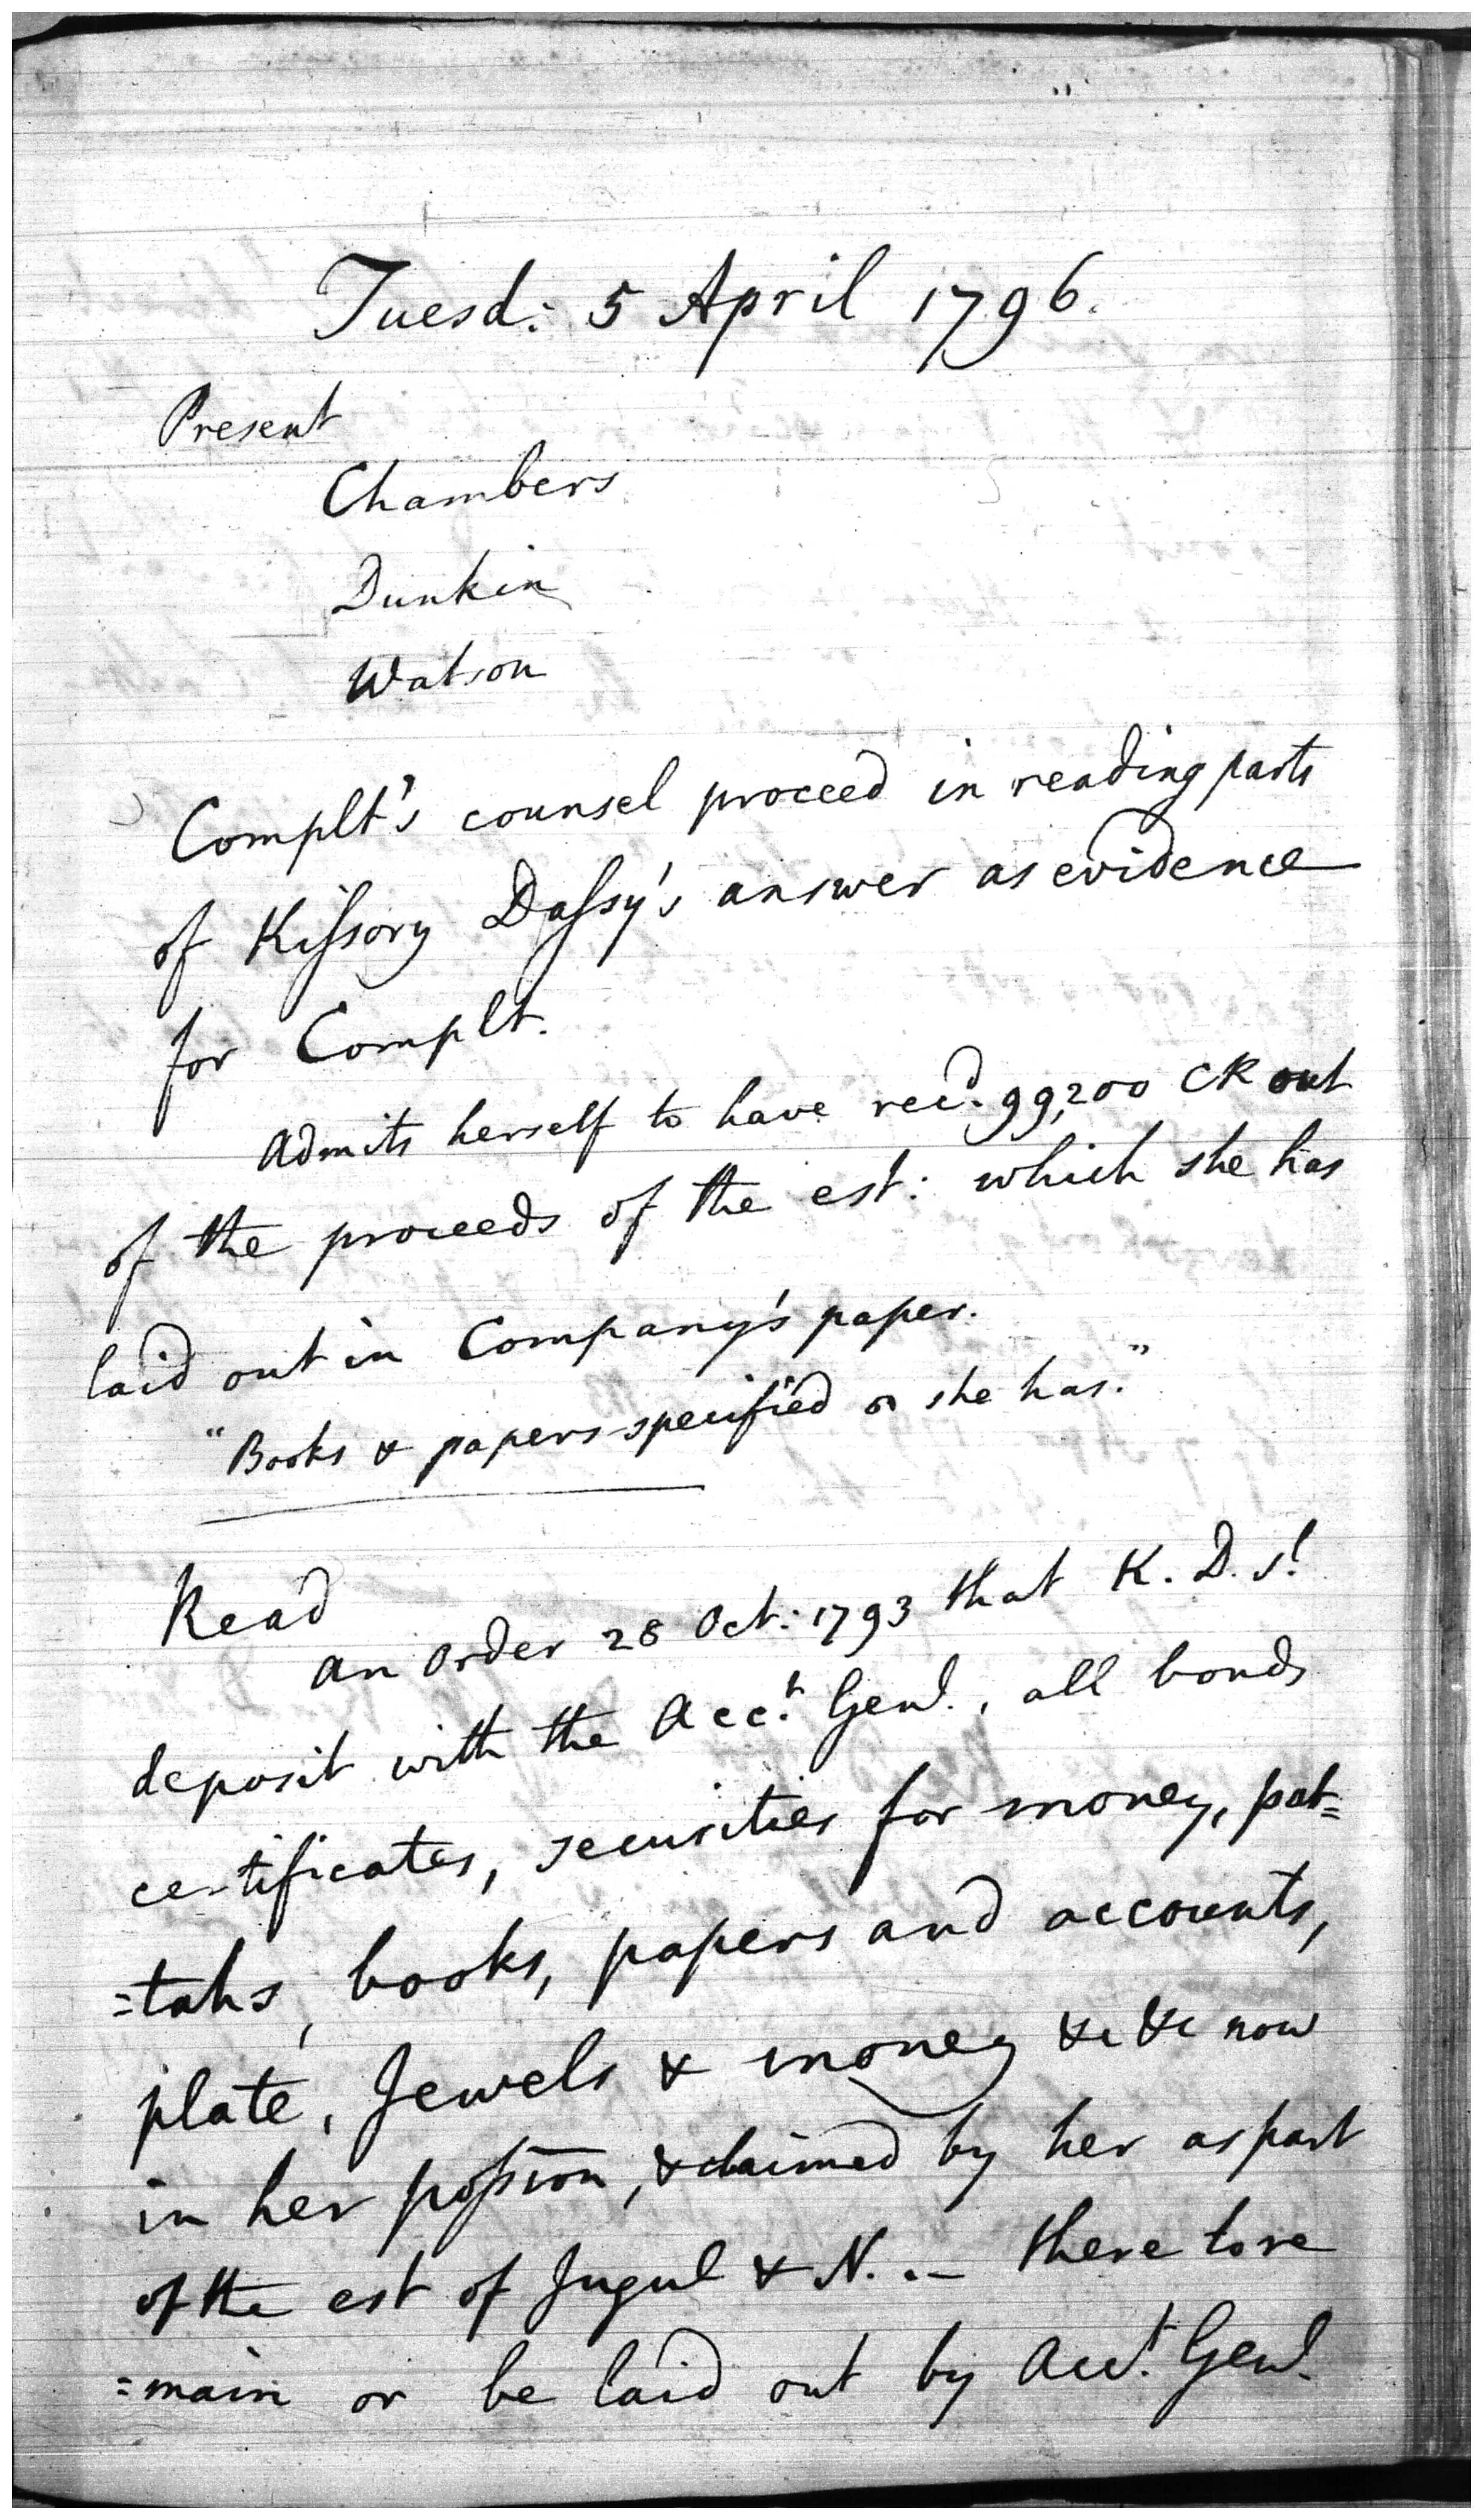 Tuesd: 5 April 1796.
Present
Chambers
Dunkin
Watson
Complt's counsel proceed in reading parts
of Kissory Dassy's answer as evidence
for Complt.
Admits herself to have recd. 99,200 CR out
of the proceeds of the est: which she has
laid out in Company's paper.
"Books & papers specified she has."
Read
an Order 28 Oct: 1793 that K. D. sd.
deposit with the Acct. Genl., all bonds
certificates, securities for money, pot=
=tahs, books, papers and accounts,
plate, Jewels & money &c &c now
in her possion, & claimed by her as part
of the est of Jugul & N. — there to re
=main or be laid out by Acct. Genl.